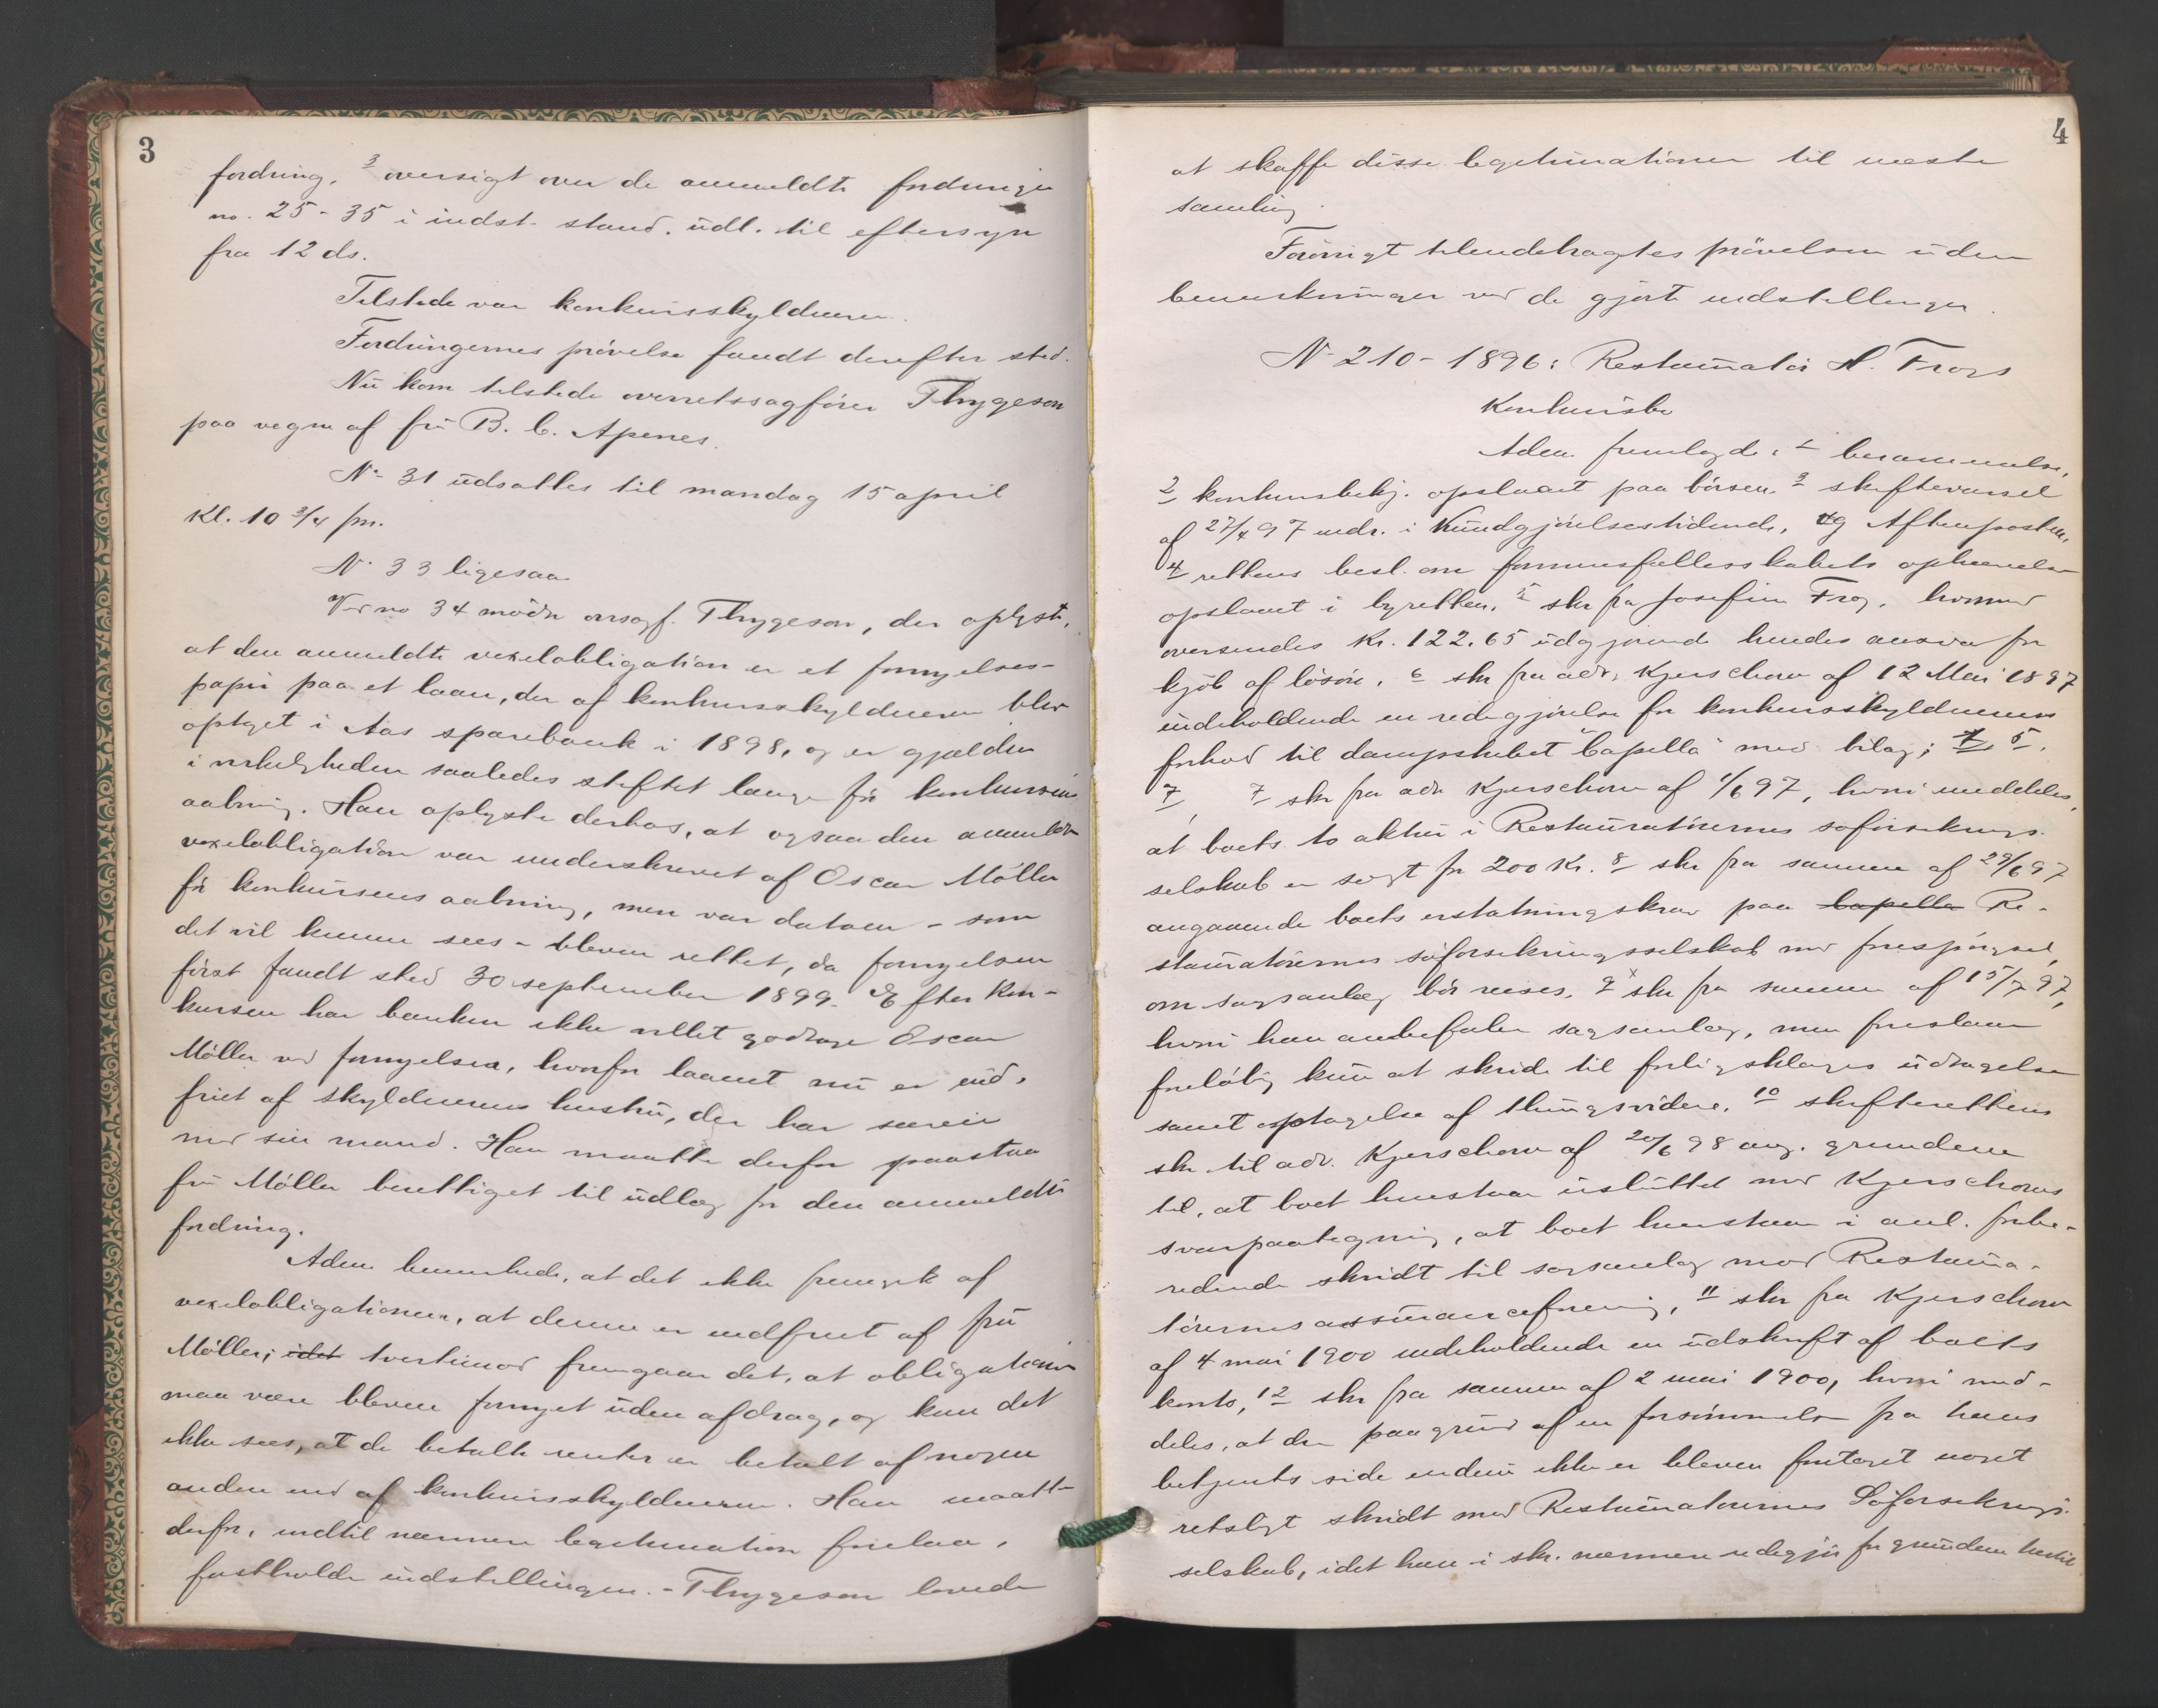 3
fordring, 3 oversigt over de anmeldte fordringer
no. 25-35 i indst. stand. udl. til eftersyn
fra 12 ds.
Tilstede var konkursskyldneren.
Fordringernes prövelse fandt derefter sted.
Nu kom tilstede overretssagförer Thygeson
paa vegne af fru B. C. Apenes.
No 31 udsattes til mandag 15 april
Kl. 10 3/4 fm.
No 33 ligesaa
Ved no 34 mödte orsagf. Thygeson, der oplyste,
at den anmeldte vexelobligation er et fornyelses-
papir paa et laan, der af konkursskyldneren blev
optaget i Aas sparebank i 1898, og er gjælden
i virkeligheden saaledes stiftet længe för konkursens
aabning. Han oplyste derhos, at ogsaa den anmeldte
vexelobligation var underskrevet af Oscar Möller
för konkursens aabning, men var datoen - som
det vil kunne sees - bleven rettet, da fornyelsen
först fandt sted 30 september 1899. Efter kon-
kursen har banken ikke villet godtage Oscar
Möller ved fornyelsen, hvorfor laanet nu er ind-
friet af skyldnerens hustru, der har særeie
med sin mand. Han maatte derfor paastaa
fru Möller berettiget til udlæg for den anmeldte
fordring.
Adm. bemærkede, at det ikke fremgik af
vexelobligationen, at denne er indfriet af fru
Möller; idet tvertimod fremgaar det, at obligationen
maa være bleven fornyet uden afdrag, og kan det
ikke sees, at de betalte renter er betalt af nogen
anden end af konkursskyldneren. Han maatte
derfor, indtil nærmere legitimation forelaa,
fastholde indstillingen. - Thygeson lovede
4
at skaffe disse legitimationer til næste
samling.
Forövrigt tilendebragtes prövelsen uden
bemærkninger ved de gjorte indstillinger.
No 210-1896: Restauratör H. Frogs
Konkursbo
Adm. fremlagde: 1 berammelse,
2 konkursbekj. opslaaet paa börsen. 3 skiftevarsel
af 27/4 97 indr. i Kundgjörelsestidende, og Aftenposten,
4 rettens besl. om formuesfællesskabets ophævelse
opslaaet i byretten, 5 skr fra Josefine Frog, hvormed
oversendes Kr. 122.65 udgjörende hendes ansvar for
kjöb af lösöre, 6 skr fra adv. Kjerschow af 12 Mai 1897
indeholdende en redegjörelse for konkursskyldnerens
forhold til dampskibet "Capella" med bilag; 7. 5.
7, 7 skr fra adv Kjerschow af 1/6 97, hvori meddeles,
at boets to aktier i Restauratörernes söforsikrings-
selskab er solgt for 200 Kr. 8 skr fra samme af 29/6 97
angaaende boets erstatningskrav paa Capella Re-
stauratörernes söforsikringsselskab med forespörgsel,
om sagsanlæg bör reises. 9 skr fra samme af 15/7 97,
hvori han anbefaler sagsanlæg, men foreslaar
forelöbig kun at skride til forligsklages udtagelse
samt optagelse af thingsvidne. 10 skifterettens
skr til adv. Kjerschow af 20/6 98 ang. grundene
til, at boet henstaar usluttet med Kjerschows
svarpaategning, at boet henstaar i anl. forbe-
redende skridt til sagsanlæg mod Restaura-
törernes assuranceforening, 11 skr fra Kjerschow
af 4 mai 1900 indeholdende en udskrift af boets
konto, 12 skr fra samme af 2 mai 1900, hvori med-
deles, at der paa grund af en forsömmelse fra hans
betjents side endnu ikke er bleven foretaget noget
retsligt skridt mod Restauratörernes Söforsikrings-
selskab, idet han i skr. nærmere redegjör for grundene hertil